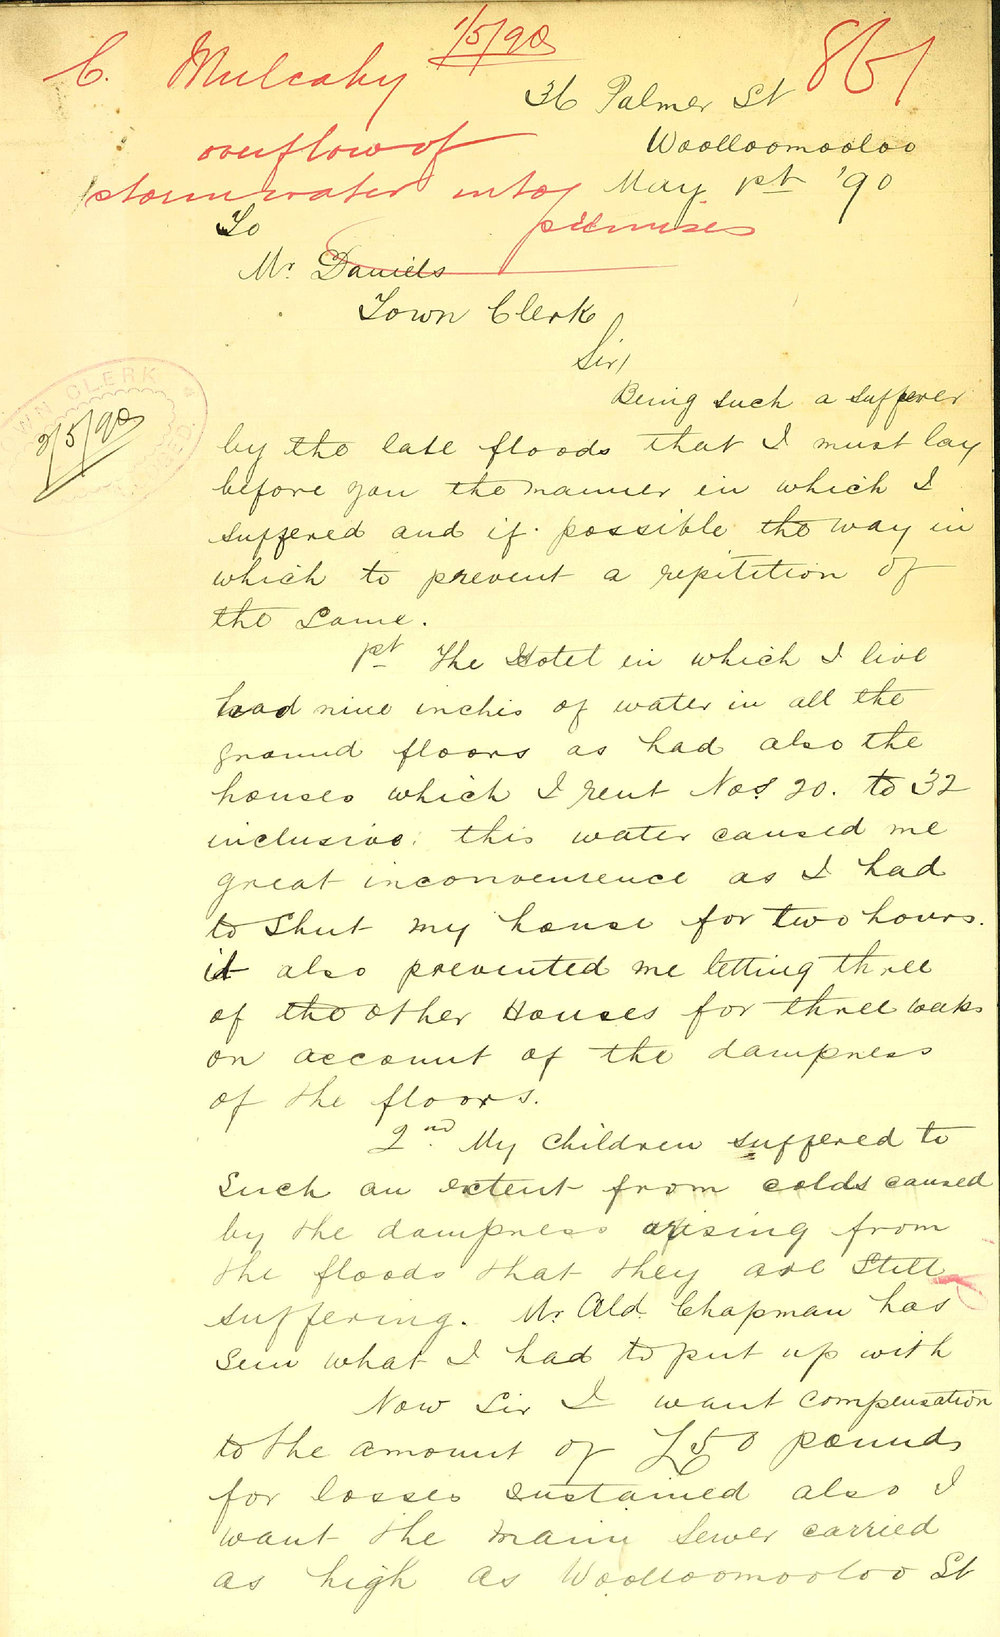 1/5/90
C. Mulcahy
861
36 Palmer St
overflow of
Woolloomooloo
stormwater into
May 1st '90
premises
To
Mr. Daniels
Town Clerk
Sir,
TOWN CLERK
2/5/90
Being such a sufferer
by the late floods that I must lay
before you the manner in which I
suffered and if possible the way in
which to prevent a repitition of
the same.
1st The Hotel in which I live
had nine inches of water in all the
ground floors as had also the
houses which I rent Nos 20. to 32
inclusive. this water caused me
great inconvenience as I had
to shut my house for two hours.
it also prevented me letting three
of the other Houses for three weeks
on account of the dampness
of the floors.
2nd. My children suffered to
such an extent from colds caused
by the dampness arising from
the floods that they are still
suffering. Mr. Ald. Chapman has
seen what I had to put up with
Now Sir I want compensation
to the amount of £50 pounds
for losses sustained also I
want the main sewer carried
as high as Woolloomooloo St